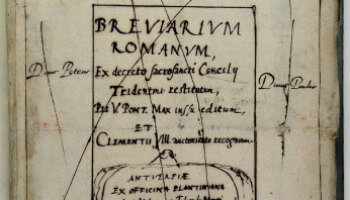 BREVIARIVM
ROMANVM,
Ex decreto sacrosancti Concilij
Tridentini restitutum,
Pii V. PONT. MAX iussu editum,
ET
CLEMENTIS VIII. auctoritate recognitum
Diuus Petrus
Diuus Paulus
ANTVERPIÆ
EX OFFICINA PLANTINIANA